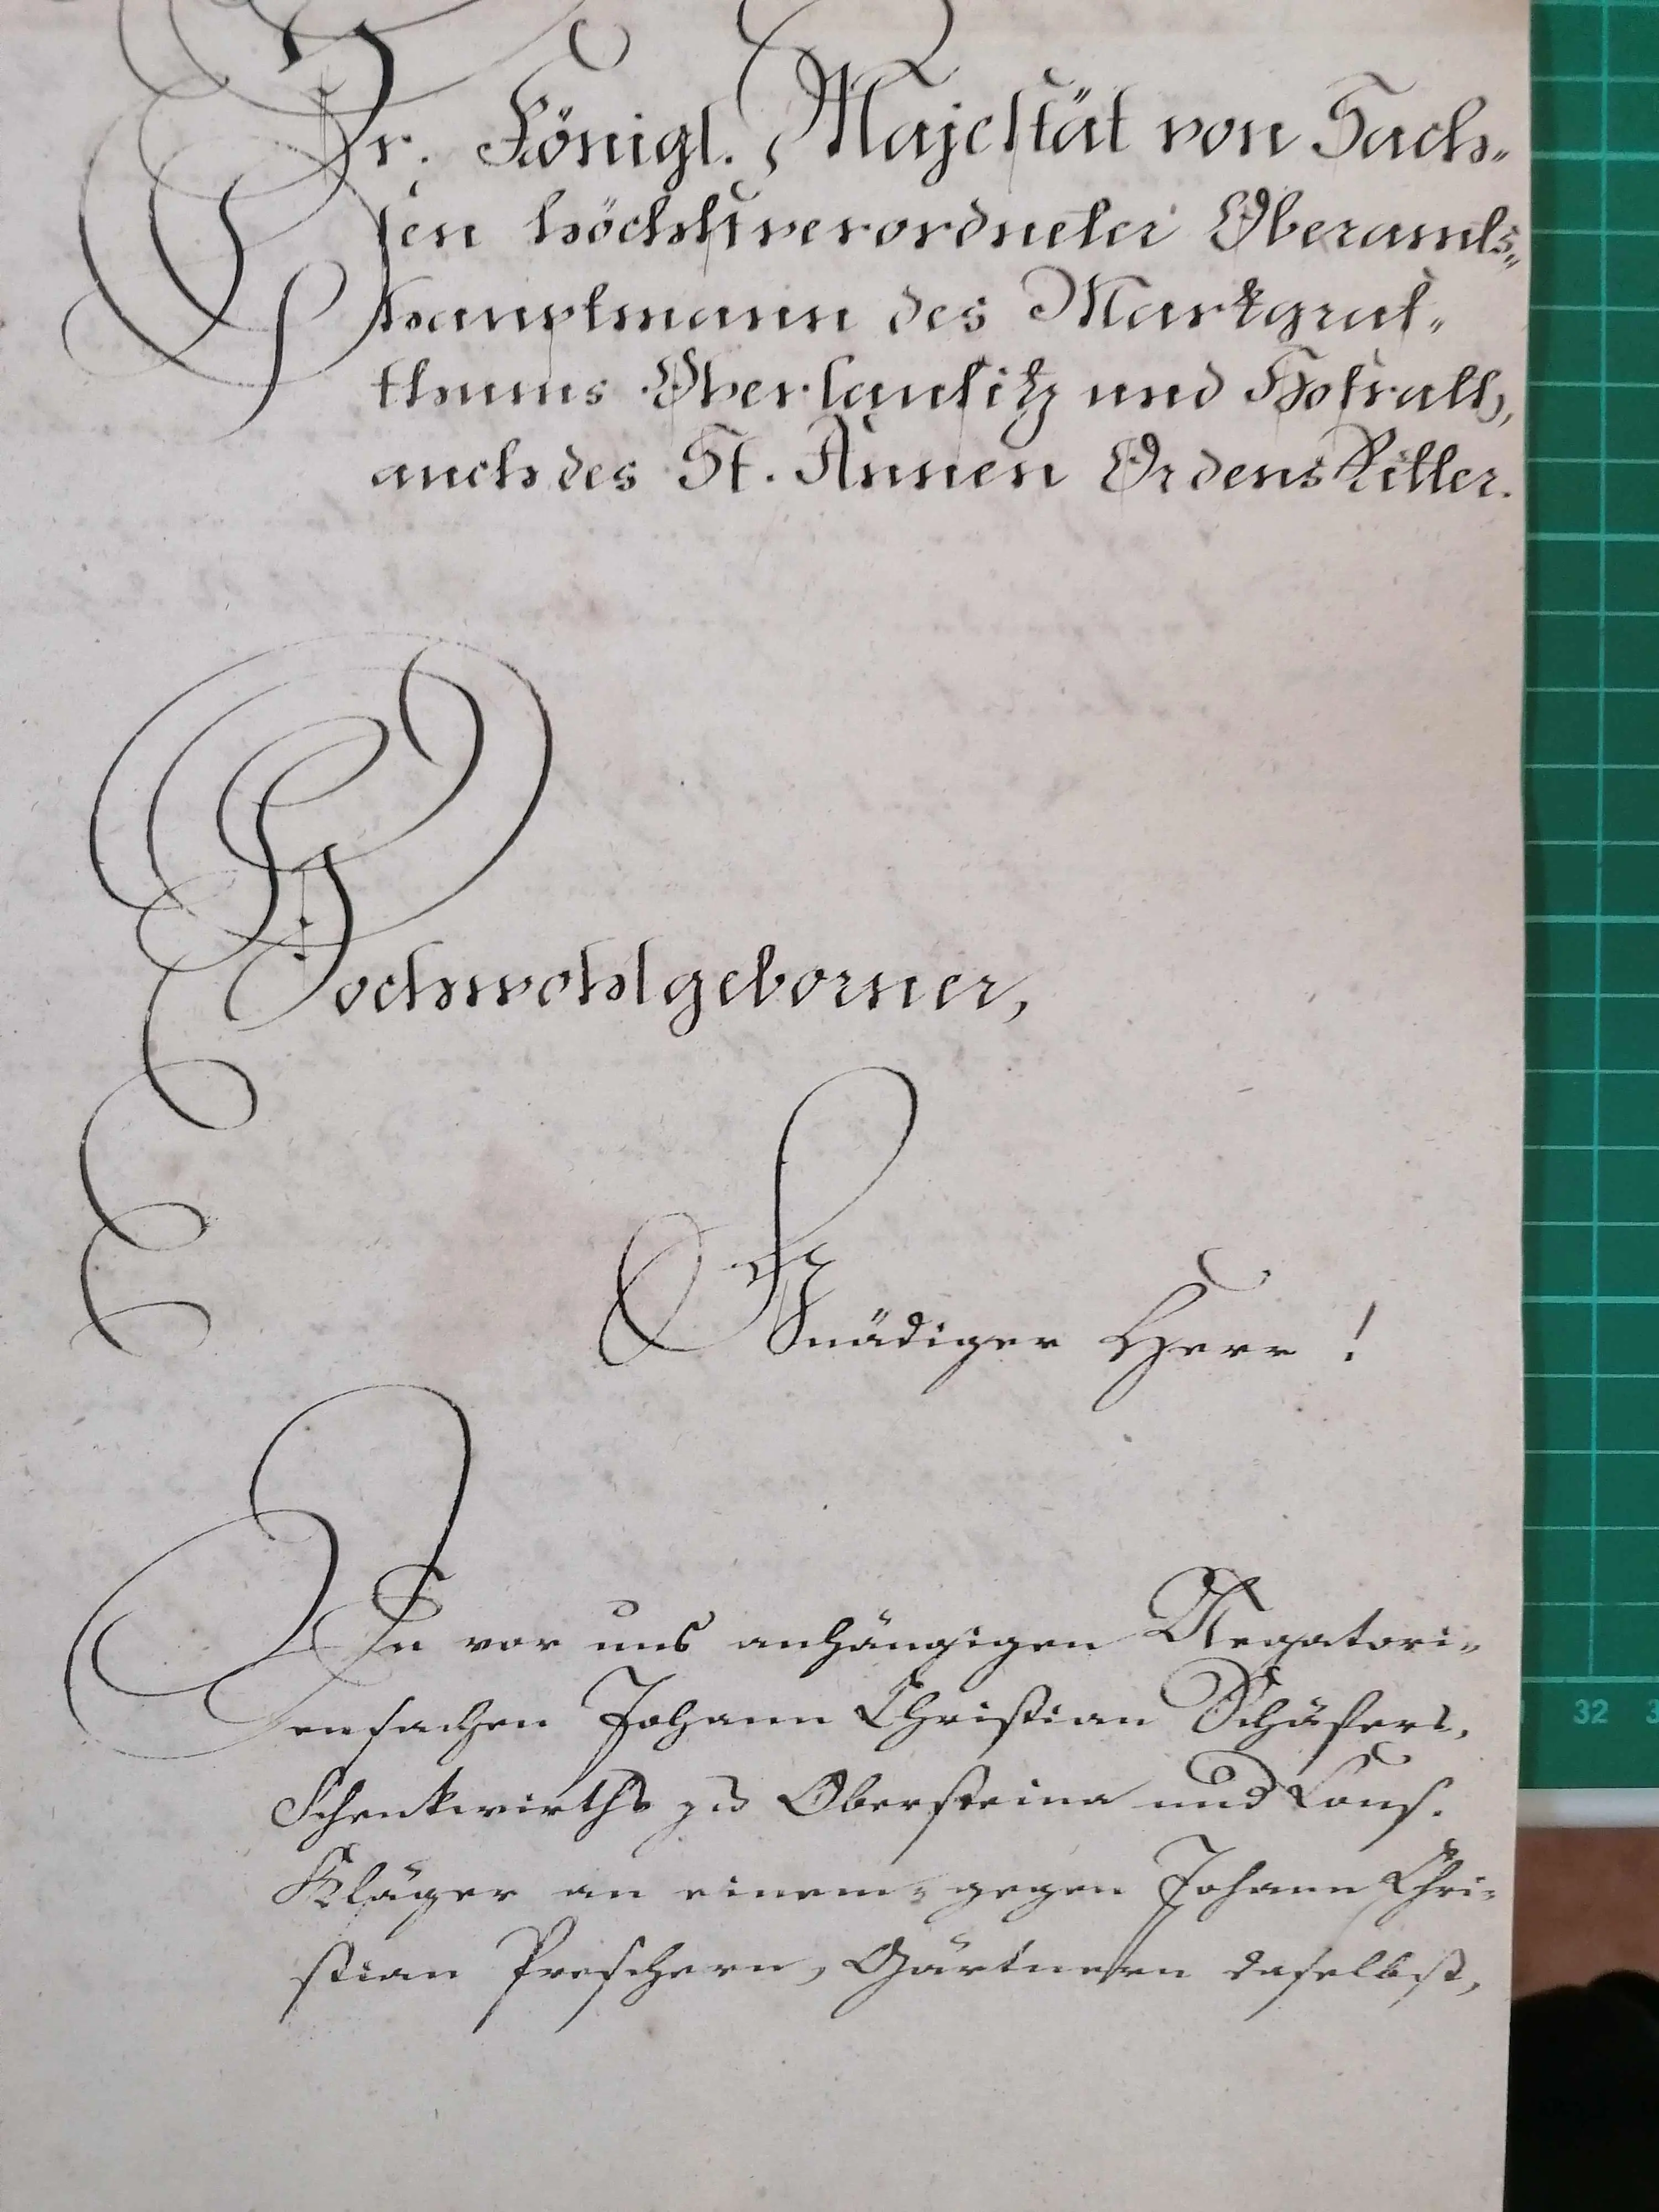 Sr. Königl. Majestät von Sach-
sen höchstverordneter Oberamts-
hauptmann des Markgraf-
thums Oberlausitz und Hofrath,
auch des St. Annen Ordens Ritter.
Hochwohlgeborner,
Gnädiger Herr!
In vor uns anhängigen Negatori-
ensachen Johann Christian Schäfers,
Schenkwirths zu Obersteina und Cons.
Kläger an einem- gegen Johann Chri-
stian Preschern, Gärtnern daselbst,
32
3